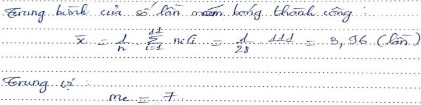 Trung bình của số lần ném bóng thành công :
x̄ = 1/n . Σ nici = 1/28 . 111 = 3,96 (lần)
Trung vị :
me = 7